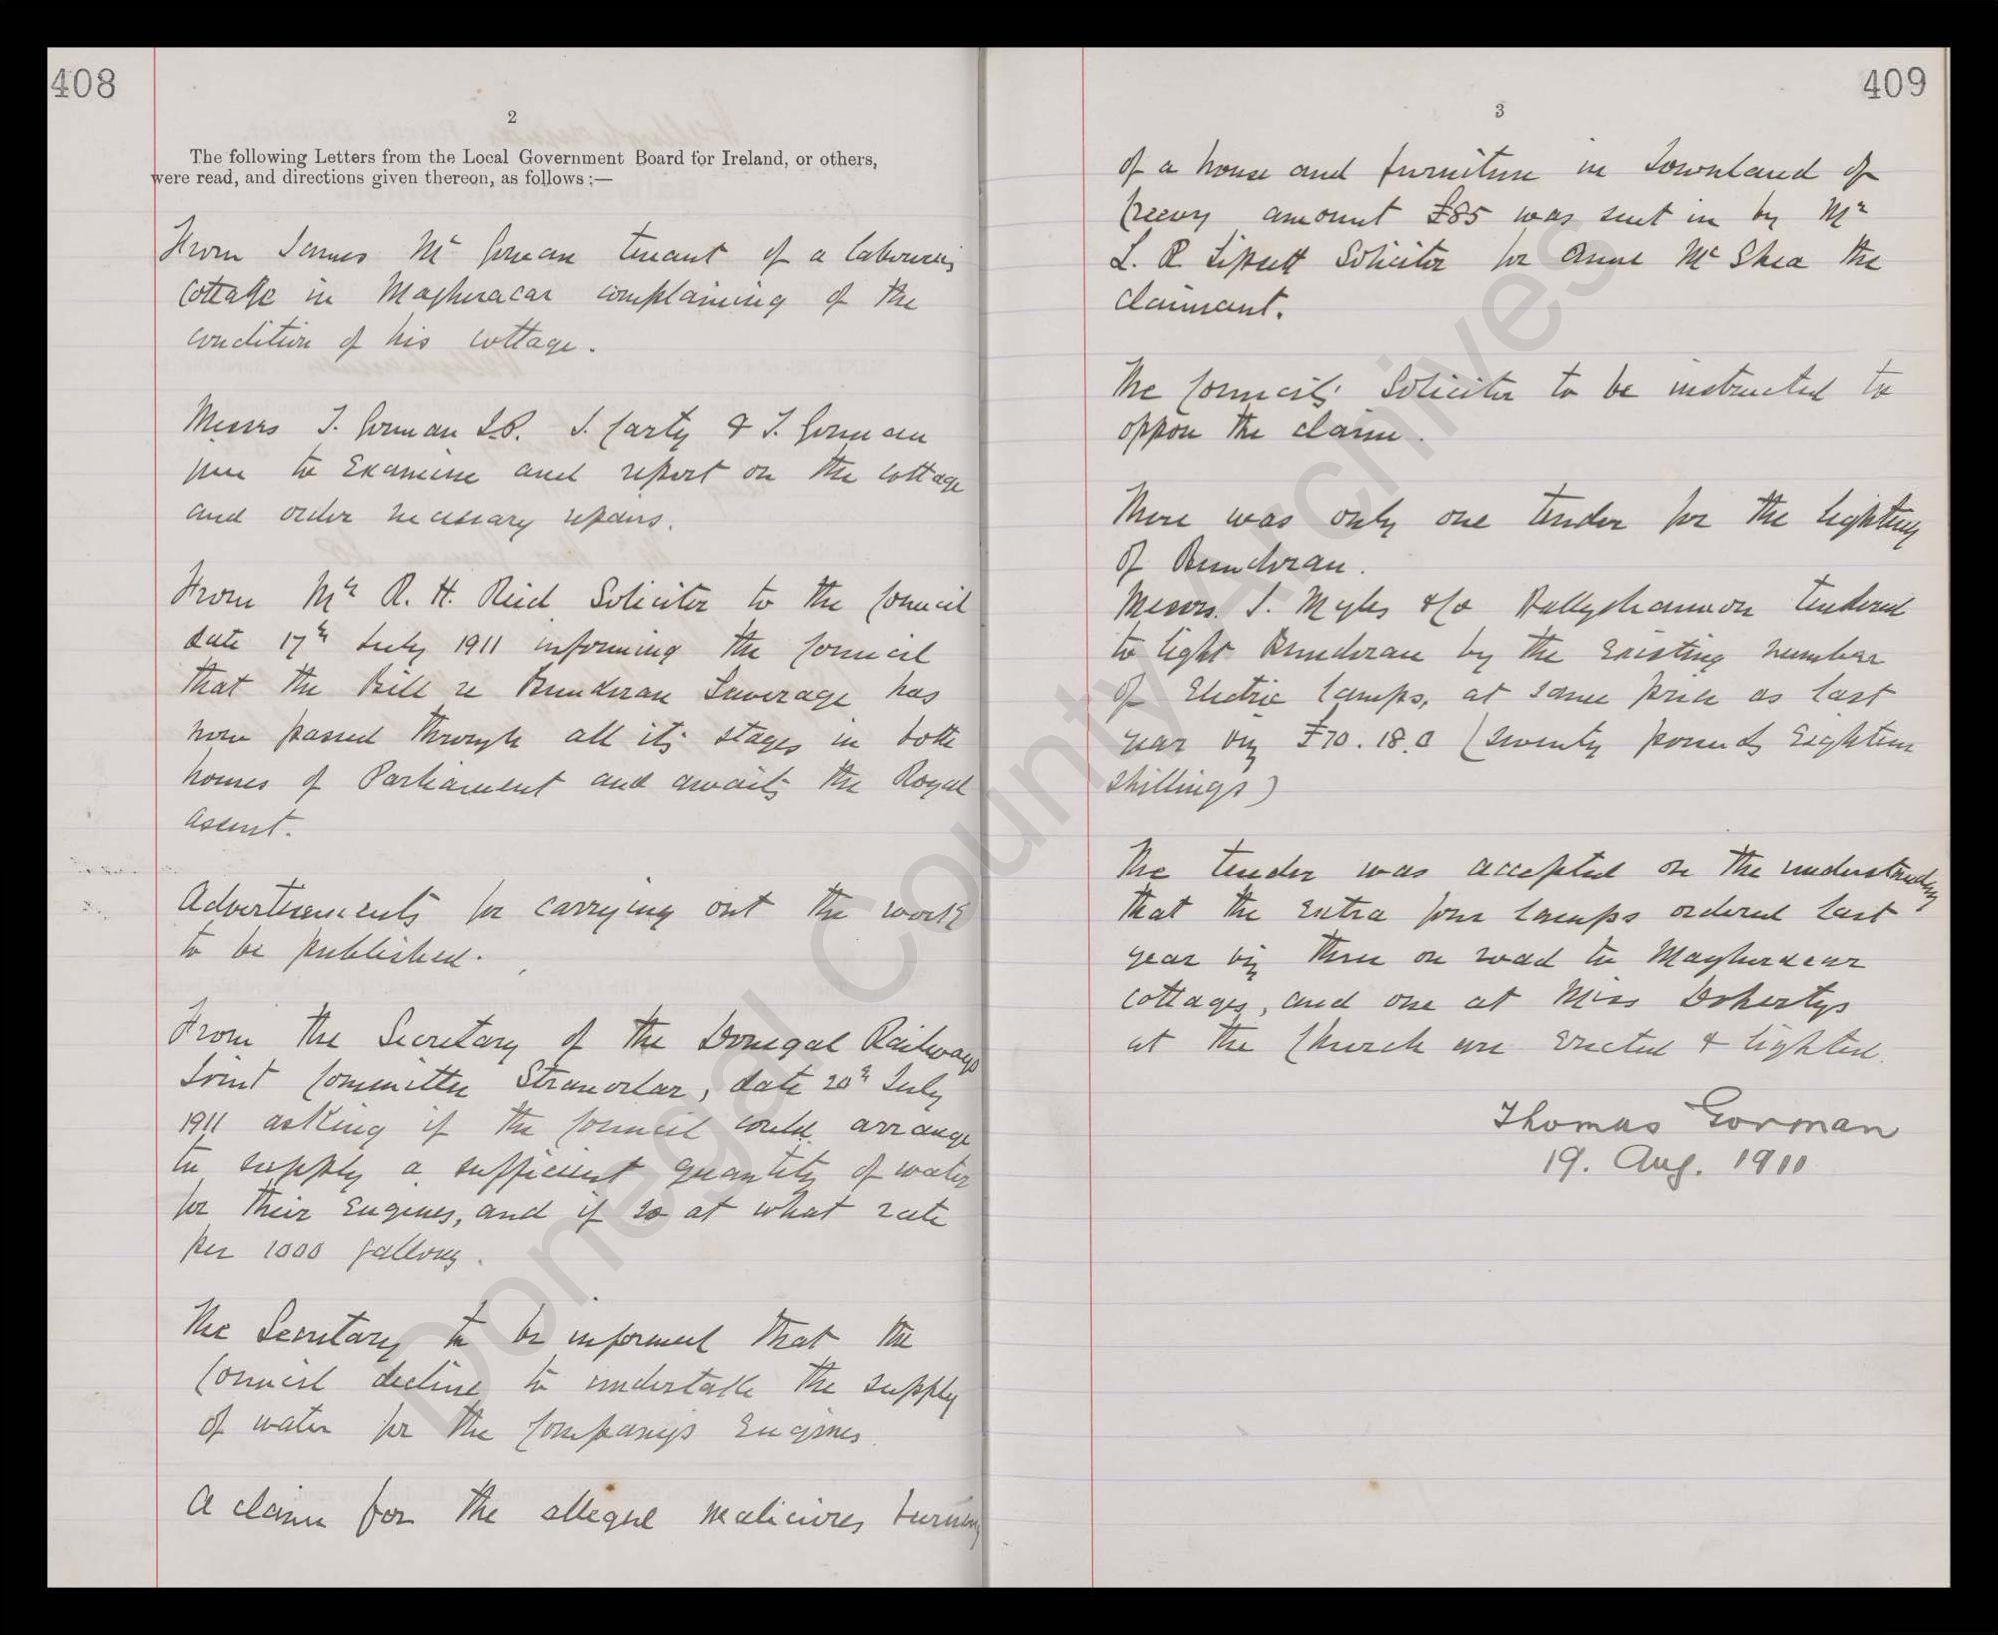 408
2
The following Letters from the Local Government Board for Ireland, or others,
were read, and directions given thereon, as follows :—
From James Mc Gowan tenant of a labourers
cottage in Magheracar complaining of the
condition of his cottage.
Messrs T. Gorman J.P. J. Carty & T. Gorman
junr to Examine and report on the cottage
and order necessary repairs.
From Mr R. H. Reid Solicitor to the Council
date 17th July 1911 informing the Council
that the Bill re Bundoran Sewerage has
now passed through all its stages in both
houses of Parliament and awaits the Royal
assent.
Advertisements for carrying out the work
to be published.
From the Secretary of the Donegal Railways
Joint Committee Stranorlar, date 20th July
1911 asking if the Council could arrange
to supply a sufficient quantity of water
for their Engines, and if so at what rate
per 1000 gallons.
The Secretary to be informed that the
Council decline to undertake the supply
of water for the Companys Engines.
A claim for the alleged malicious burning
409
3
of a house and furniture in Townland of
amount £85 was sent in by Mr
L. R. Lipsett Solicitor for Anne Mc Shea the
claimant.
The Councils' Solicitor to be instructed to
oppose the claim.
There was only one tender for the lighting
of Bundoran.
Messrs. J. Myles & Co Ballyshannon tendered
to light Bundoran by the Existing number
of Electric lamps, at same price as last
year viz £70.18.0 (seventy pounds Eighteen
shillings)
The tender was accepted on the understanding
that the extra four lamps ordered last
year viz three on road to Magheracar
cottages, and one at Miss Dohertys
at the Church are Erected & lighted.
Thomas Gorman
19. Aug. 1911
Donegal County Archives